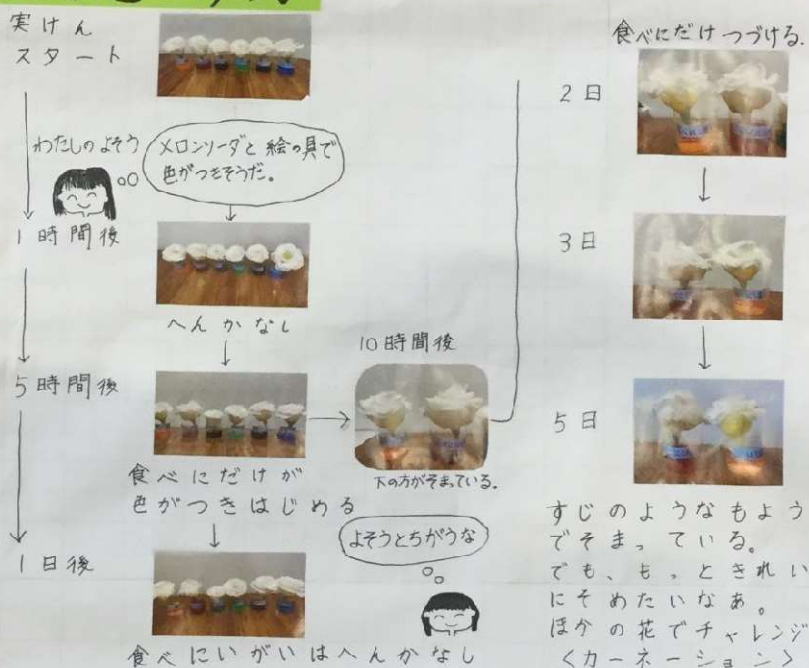 実けん
スタート
わたしのよそう
メロンソーダと絵の具で
色がつきそうだ。
1時間後
へんかなし
5時間後
食べにだけが
色がつきはじめる
10時間後
下の方がそまっている。
1日後
よそうとちがうな
食べにいがいはへんかなし
食べにだけつづける.
2日
3日
5日
すじのようなもよう
でそまっている。
でも、もっときれい
にそめたいなあ。
ほかの花でチャレンジ
<カーネーション>